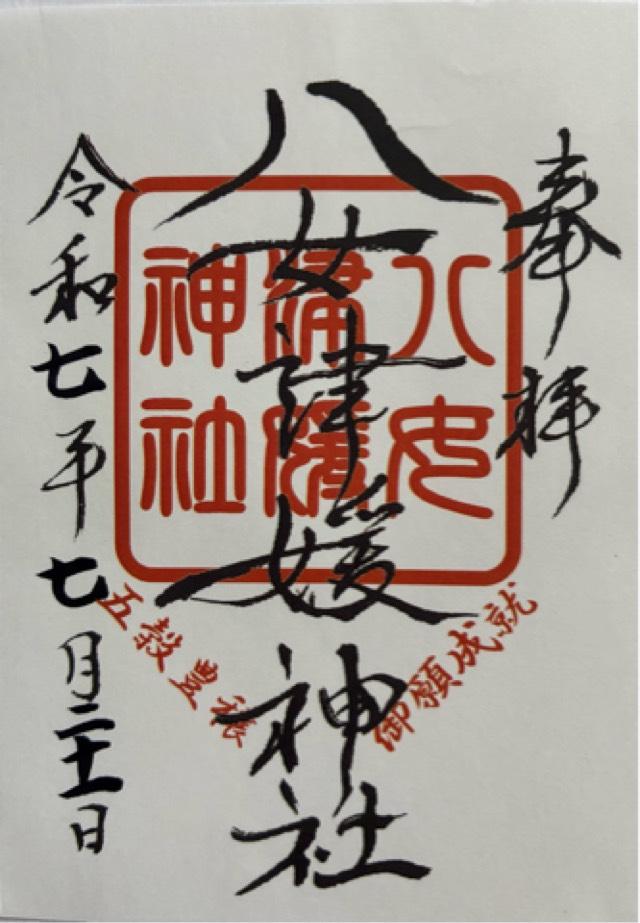 奉拝
八女津媛神社
八女
津媛
神社
御願成就
五穀豊穣
令和七年七月二十一日